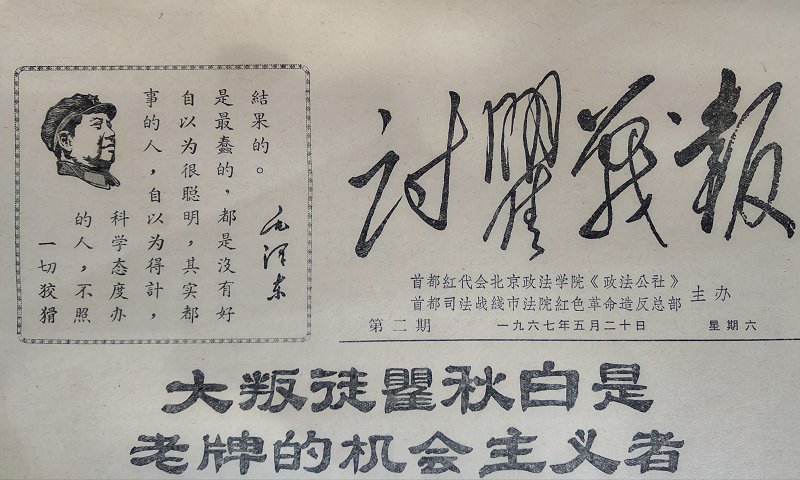 一切狡猾
的人，不照
科学态度办
事的人，自以为得計，
自以为很聪明，其实都
是最蠢的，都是沒有好
結果的。
毛泽东
讨瞿战報
首都紅代会北京政法学院《政法公社》
首都司法战綫市法院紅色革命造反总部
主办
第二期 一九六七年五月二十日 星期六
大叛徒瞿秋白是
老牌的机会主义者